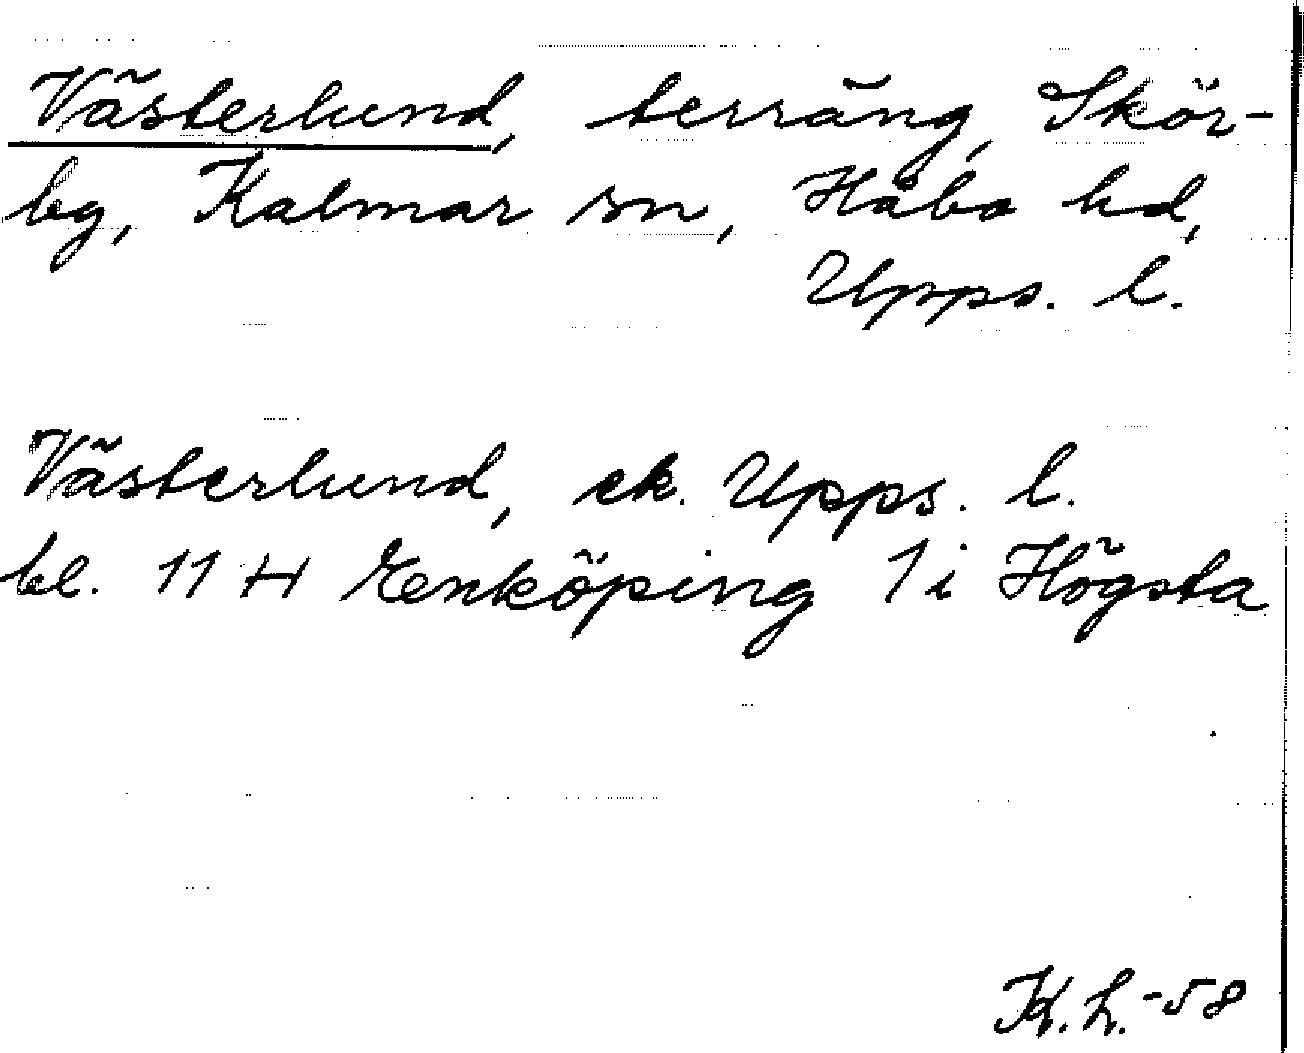 Västerlund, terräng, Skör-
by, Kalmar sn, Håbo hd,
Upps. l.
Västerlund, ek. Upps. l.
bl. 11 H Enköping 1 i Högsta
K. L. -58